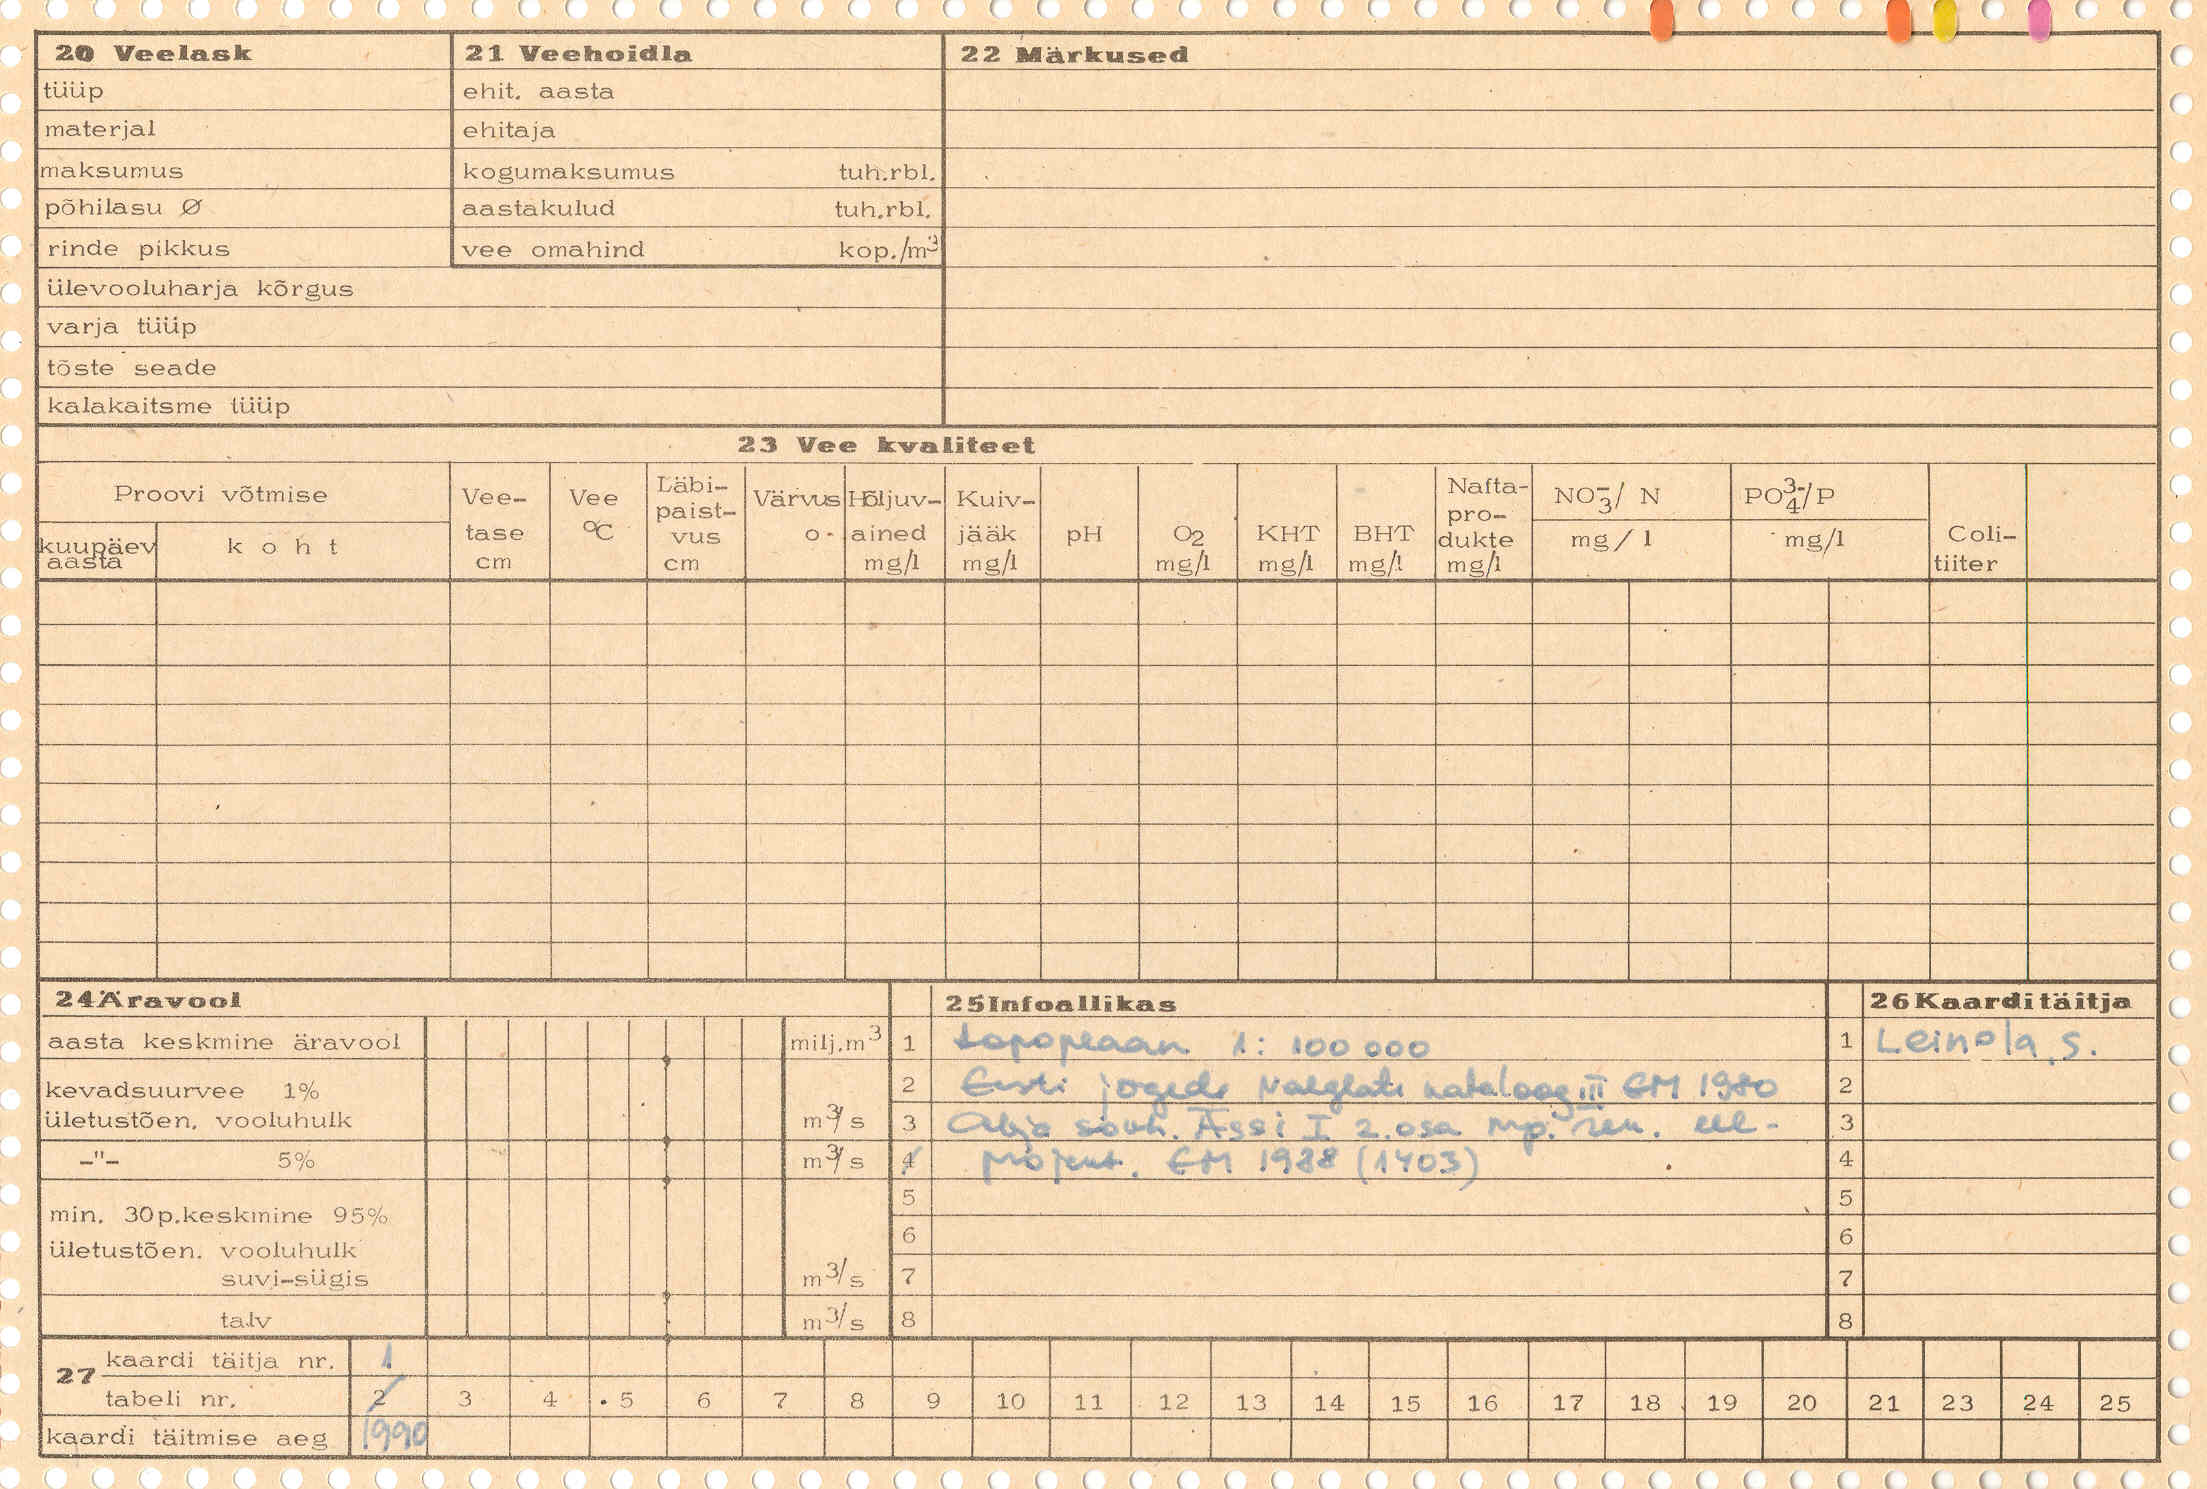 20 Veelask
tüüp
materjal
maksumus
põhilasu Ø
rinde pikkus
ülevooluharja kõrgus
varja tüüp
tõste seade
kalakaitsme tüüp
21 Veehoidla
ehit. aasta
ehitaja
kogumaksumus tuh.rbl.
aastakulud tuh.rbl.
vee omahind kop./m³
22 Märkused
23 Vee kvaliteet
Proovi võtmise
kuupäev aasta
koht
Vee-
tase
cm
Vee
°C
Läbi-
paist-
vus
cm
Värvus
o-
Hõljuv-
ained
mg/l
Kuiv-
jääk
mg/l
pH
O2
mg/l
KHT
mg/l
BHT
mg/l
Nafta-
pro-
dukte
mg/l
NO3-/ N
mg/l
PO4 3-/P
mg/l
Coli-
tiiter
24 Äravool
aasta keskmine äravool milj.m³
kevadsuurvee 1%
ületustõen. vooluhulk m³/s
-"- 5% m³/s
min. 30p.keskmine 95%
ületustõen. vooluhulk
suvi-sügis m³/s
talv m³/s
25 Infoallikas
1 topoplaan 1: 100 000
2 Eesti jõgede valglate kataloog III EM 1980
3 Abja sovh. Ässi I 2. osa mp. rek. eel-
4 projekt. EM 1988 (1403)
5
6
7
8
26 Kaardi täitja
1 Leinola, S.
2
3
4
5
6
7
8
27
kaardi täitja nr. 1
tabeli nr. 2 3 4 5 6 7 8 9 10 11 12 13 14 15 16 17 18 19 20 21 23 24 25
kaardi täitmise aeg 1990